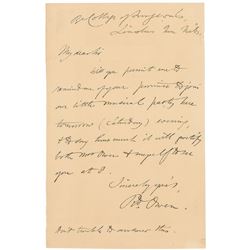 R. College of Surgeons
Lincolns Inn Fields
My dear Sir
Will you permit me to
remind me of your promise to join
our little musical party here
tomorrow (Saturday) evening
& to say how much it will gratify
both Mrs Owen & myself to see
you at 8.
Sincerely yrs,
Rd. Owen.
Don't trouble to answer this.